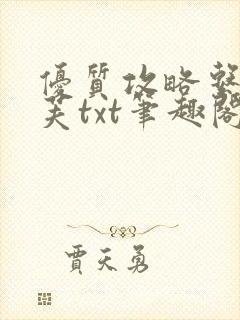 優質攻略
txt筆趣閣
賈天勇